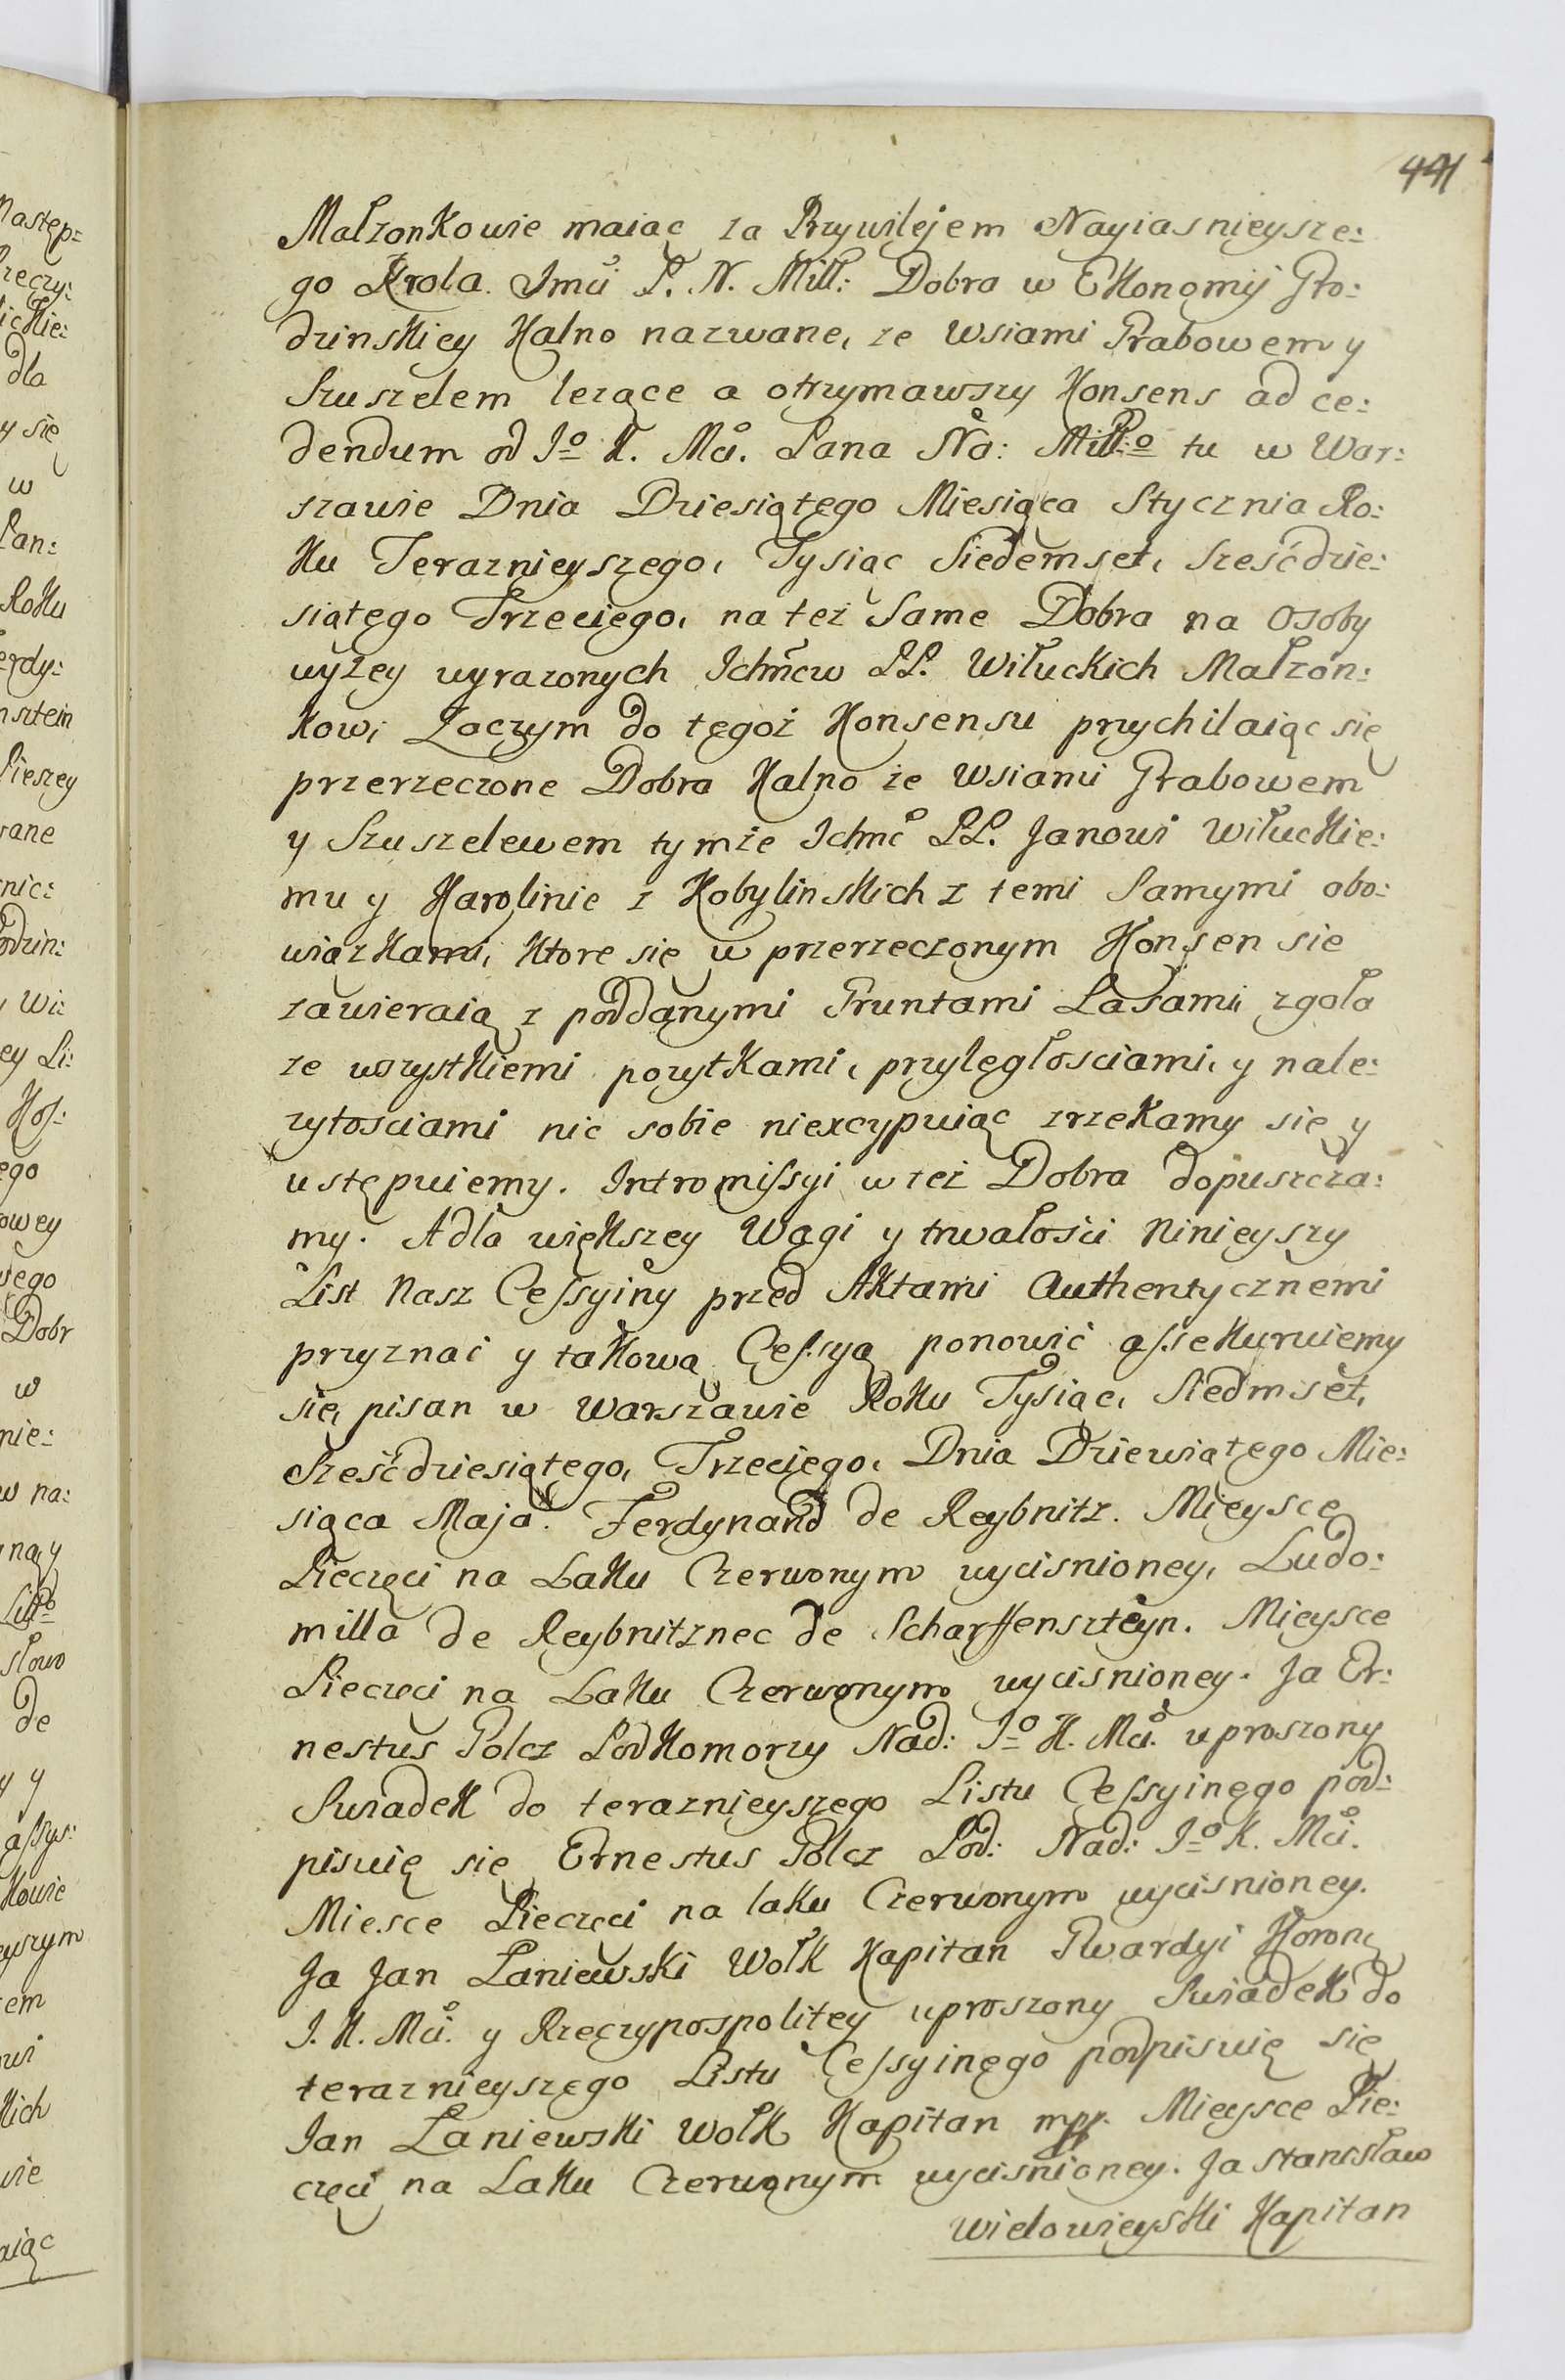 441
Małzonkowie maiąc za Przywilejem Nayiasnieysze:
go Krola Jmci P. N. Mill: Dobra w Ekonomij Gro:
dzinskiey Kalno nazwane, ze Wsiami Grabowem y
Szuszelem lezące a otrzymawszy Konsens ad ce:
dendum od Jo K. Mci. Pana Na: Mill:o tu w War:
szawie Dnia Dziesiątego Miesiąca Stycznia Ro:
ku Teraznieyszego, Tysiąc Siedemset, Sześćdzie:
siątego Trzeciego, na też Same Dobra na Osoby
wyżey wyrazonych Ichmcw PP. Wiłuckich Małzon:
kow; Zaczym do tegoż Konsensu przychilaiąc się
przerzeczone Dobra Kalno ze Wsiami Grabowem
y Szuszelewem tymże Ichmć PP. Janowi Wiłuckie:
mu y Karolinie z Kobylinskich z temi Samymi obo:
wiązkami, ktore się w przerzeczonym Konsensie
zawieraią z poddanymi Gruntami Lasami zgoła
ze wszystkiemi pozytkami, przyległosciami, y nale:
zytosciami nic sobie niexcypuiąc zrzekamy się y
ustępuiemy. Intromissyi w też Dobra dopuszcza:
my. A dla większey Wagi y trwałości Ninieyszy
List Nasz Cessyiny przed Aktami Authentycznemi
przyznać y takową Cessyą ponowić assekuruiemy
się, pisan w Warszawie Roku Tysiąc, Siedmset,
Sześćdziesiątego, Trzeciego, Dnia Dziewiątego Mie:
siąca Maja. Ferdynand de Reybnitz. Mieysce
Pieczęci na Laku Czerwonym wycisnioney, Ludo:
milla de Reybnitz nec de Scharffenszteyn. Mieysce
Pieczęci na Laku Czerwonym wycisnioney. Ja Er:
nestus Golcz Podkomorzy Nad: Jo K. Mci. uproszony
Swiadek do teraznieyszego Listu Cessyinego pod:
pisuię się Ernestus Golcz Pod: Nad: Jo K. Mci.
Miesce Pieczęci na laku Czerwonym wycisnioney.
Ja Jan Łaniewski Wołk Kapitan Gwardyi Koronę
J. K. Mci. y Rzeczypospolitey uproszony Swiadek do
teraznieyszego Listu Cessyinego podpisuię się
Jan Łaniewski Wołk Kapitan mpp. Mieysce Pie:
częci na Laku Czerwonym wycisnioney. Ja Stanisław
Wielowieyski Kapitan